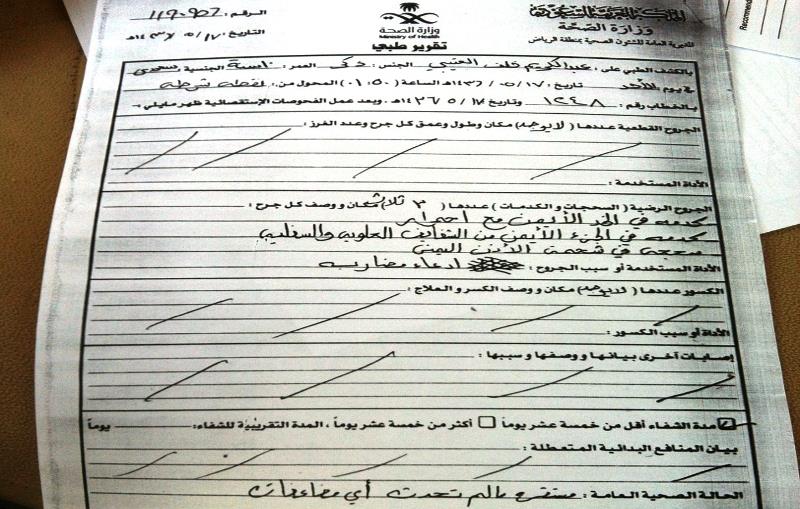 المملكة العربية السعودية
وزارة الصحة
المديرية العامة للشئون الصحية بمنطقة الرياض
وزارة الصحة
Ministry of Health
تقرير طبي
الرقم:
التاريخ ١٧/ ٥٠/ ١٤٣٦هـ
Recommend
بالكشف الطبي على: عبدالكريم خلف العتيبي الجنس: ذكر العمر: الجنسية: سعودي
في يوم الأحد تاريخ: ١٧/ ٥٠/ ١٤٣٦هـ الساعة (٠١:٥٠) المحول من: نقطة شرطة
بالخطاب رقم: ١٢٤٨ وتاريخ ١٧/ ٥/ ١٤٣٦هـ. وبعد عمل الفحوصات الإستقصائية ظهر مايلي:
الجروح القطعية عددها (لا يوجد) مكان وطول وعمق كل جرح وعدد الغرز:
الأداة المستخدمة:
الجروح الرضية (السحجات والكدمات) عددها (٣ ثلاث) مكان ووصف كل جرح:
كدمه في الخد الأيمن مع احمرار
كدمه في الجزء الأيمن من الشفايف العلويه والسفليه
سحجه في شحمة الاذن اليمنى
الأداة المستخدمة أو سبب الجروح: ادعاء مضاربه
الكسور عددها (لا يوجد) مكان ووصف الكسر والعلاج:
الأداة أو سبب الكسور:
إصابات أخرى بيانها ووصفها وسببها:
مدة الشفاء أقل من خمسة عشر يوماً أكثر من خمسة عشر يوماً، المدة التقريبية للشفاء: يوماً
بيان المنافع البدانية المتعطلة:
الحالة الصحية العامة: مستقره مالم تحدث أي مضاعفات